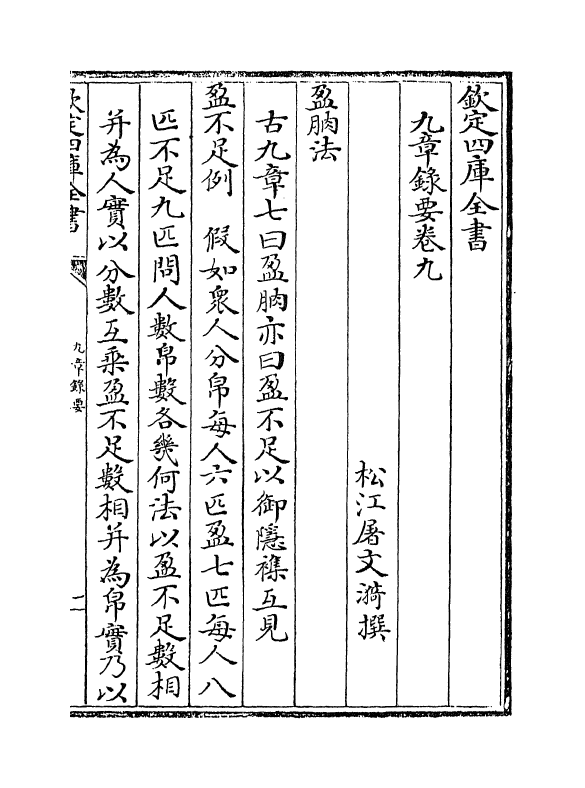 欽定四庫全書
九章錄要卷九
松江屠文漪撰
盈朒法
古九章七曰盈朒亦曰盈不足以御隱襍互見
盈不足例　假如衆人分帛每人六匹盈七匹每人八
匹不足九匹問人數帛數各幾何法以盈不足數相
并為人實以分數互乘盈不足數相并為帛實乃以
欽定四庫全書
九章錄要